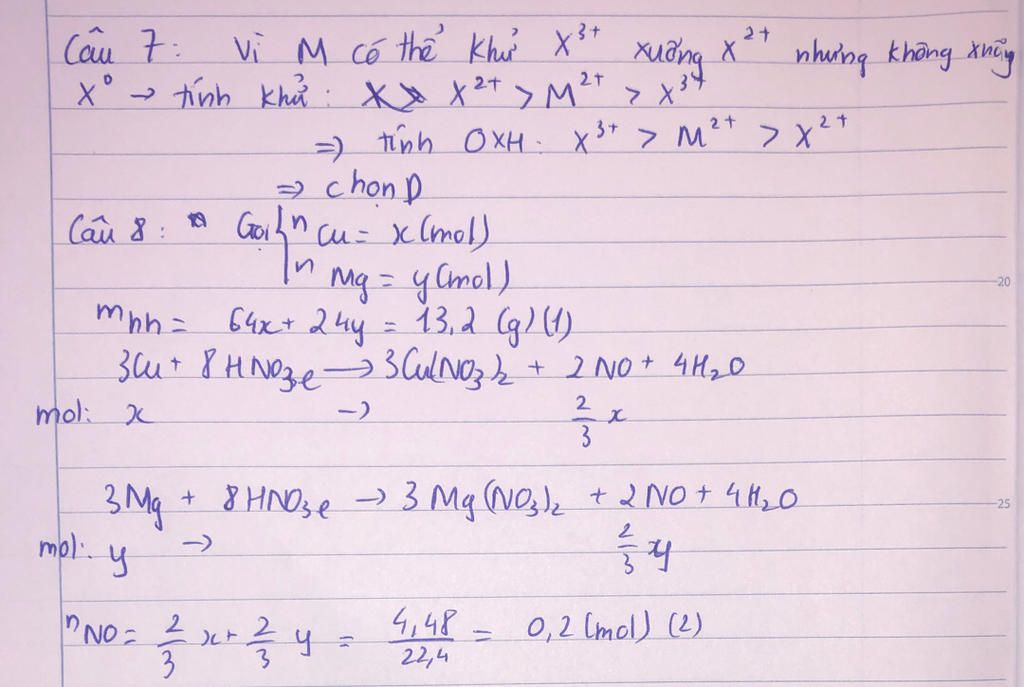 Câu 7: Vì M có thể khử X³⁺ xuống X²⁺ nhưng không xuống
X⁰ → tính khử: X²⁺ > M²⁺ > X³⁺
⇒ tính OXH: X³⁺ > M²⁺ > X²⁺
⇒ chọn D
Câu 8: Gọi { n Cu = x (mol)
n Mg = y (mol)
mhh = 64x + 24y = 13,2 (g) (1)
3Cu + 8HNO₃e → 3Cu(NO₃)₂ + 2NO + 4H₂O
mol: x → 2/3 x
3Mg + 8HNO₃e → 3Mg(NO₃)₂ + 2NO + 4H₂O
mol: y → 2/3 y
nNO = 2/3 x + 2/3 y = 4,48/22,4 = 0,2 (mol) (2)
20
25